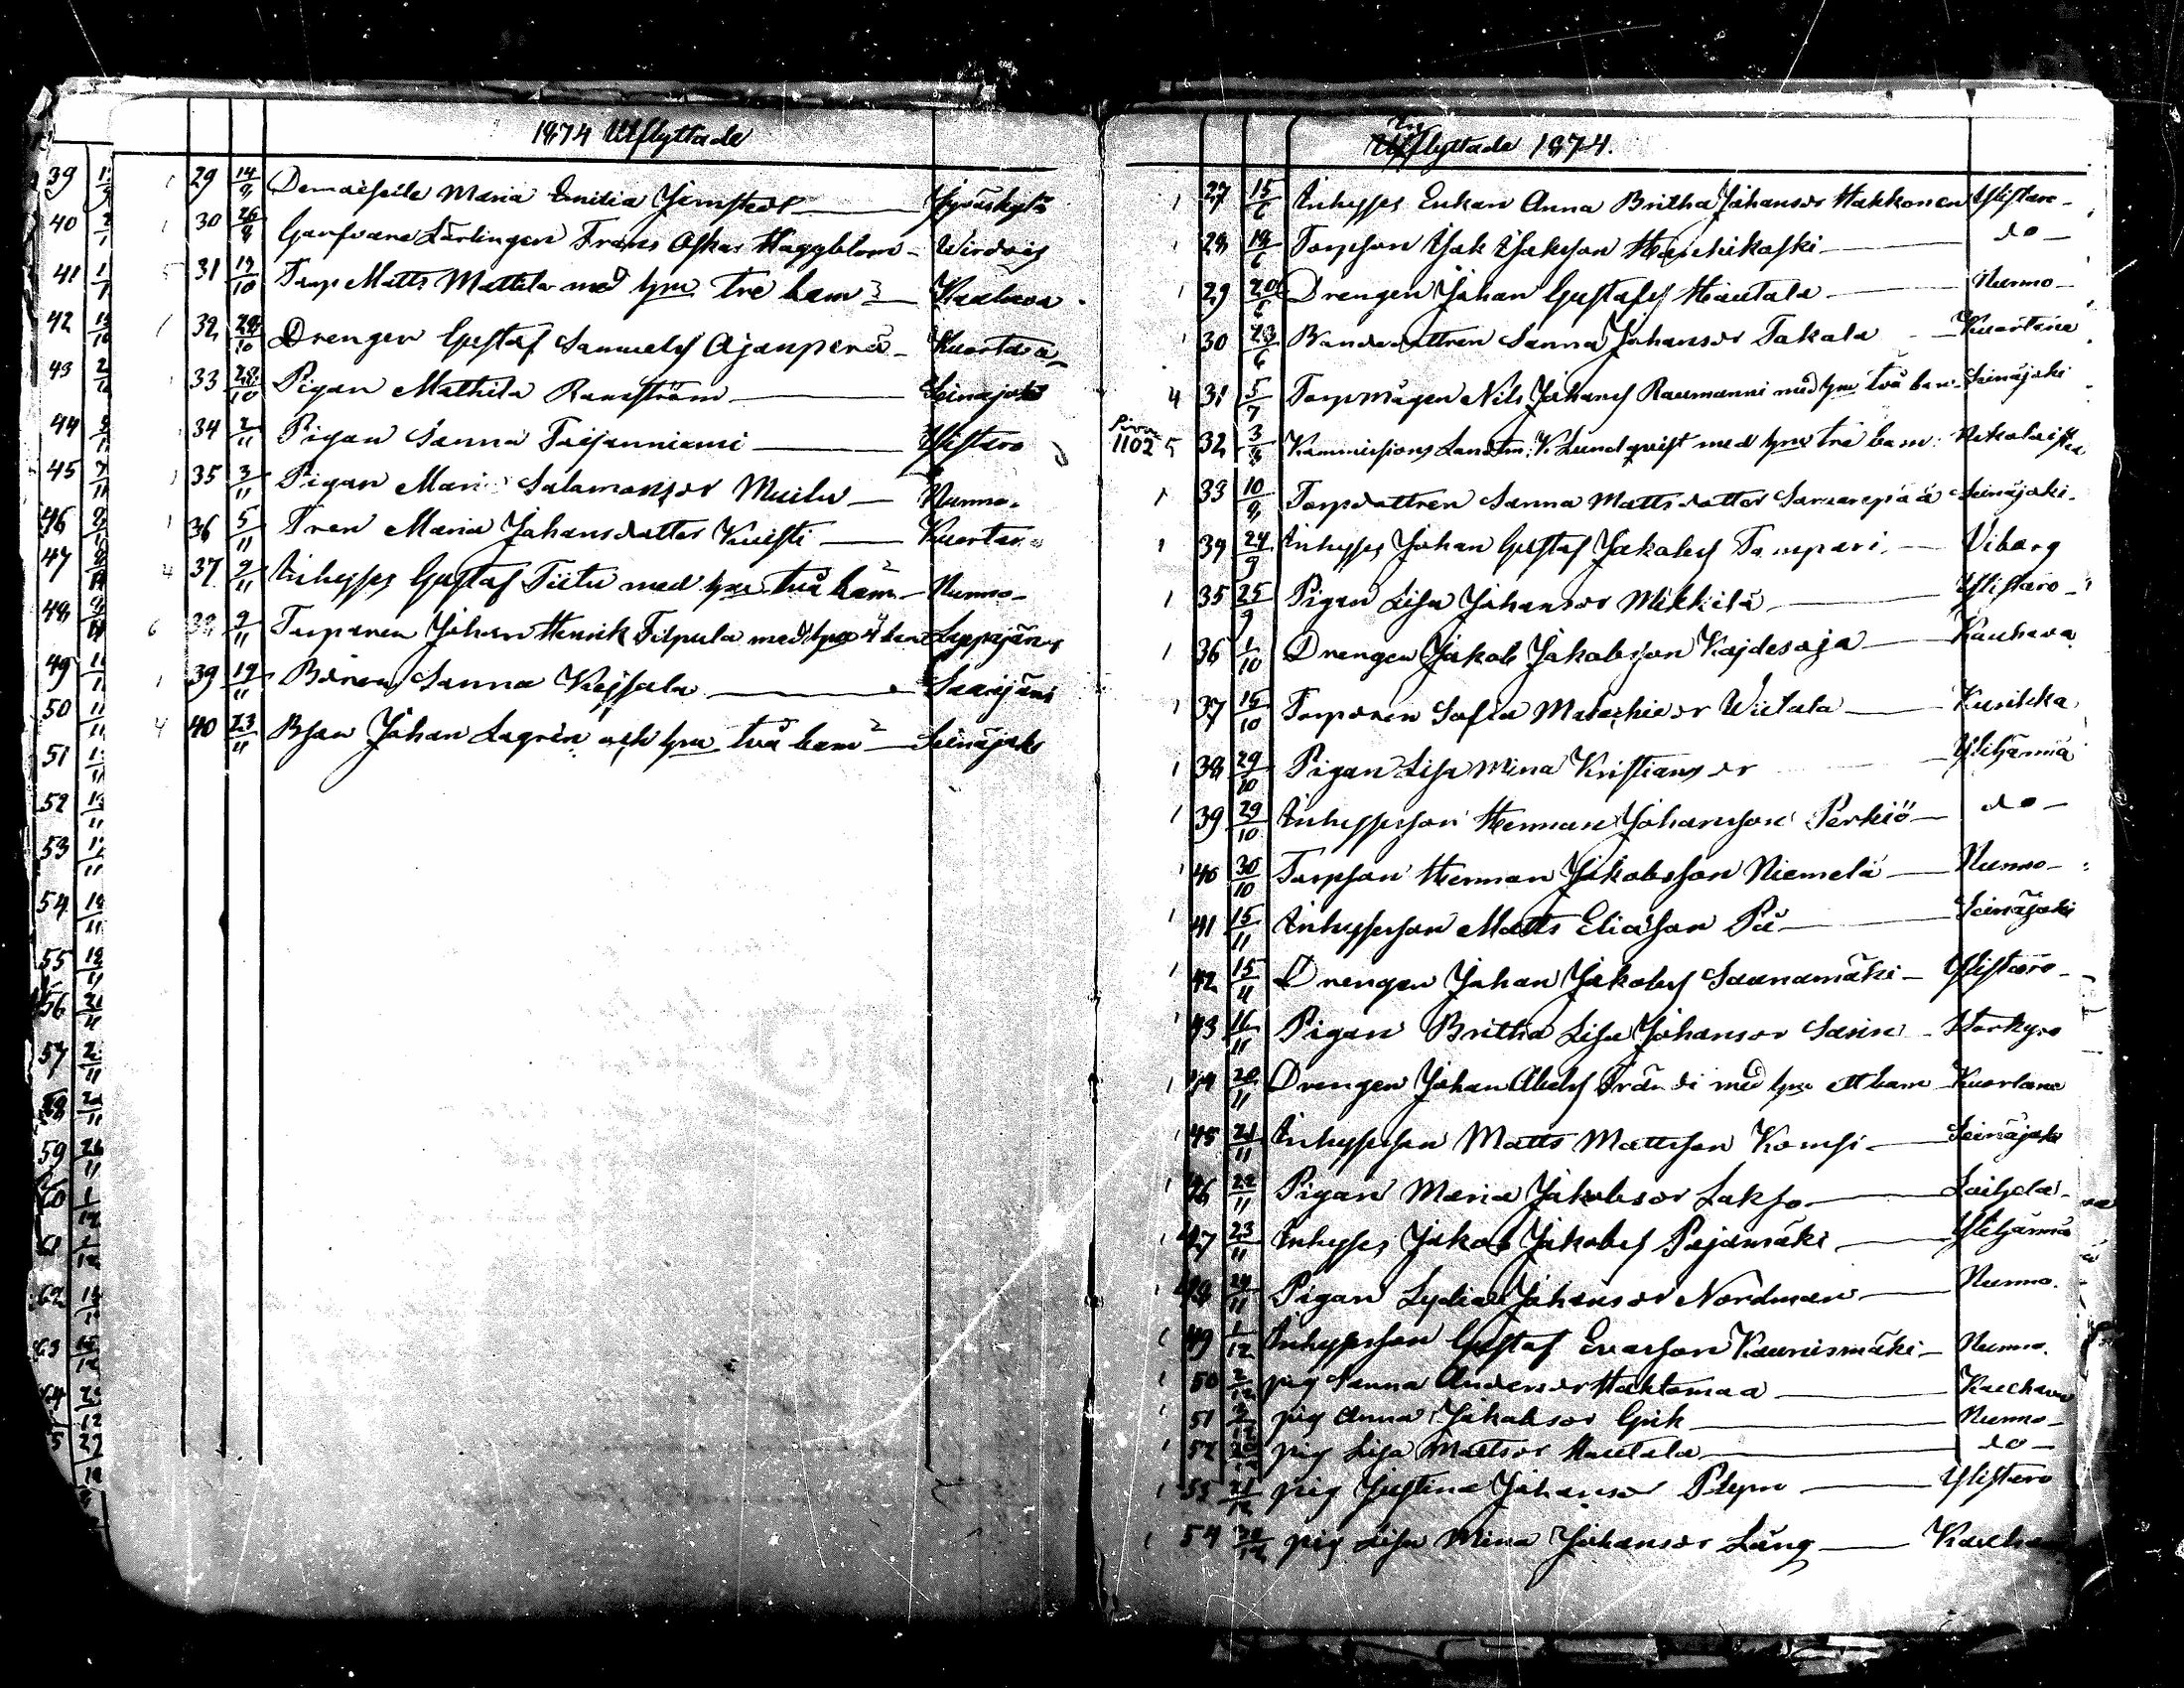 1874 Utflyttade
29 14/9 Demaiselle Maria Emilia Jernstedt Jyväskylä
30 26/9 Garfvare Lärlingen Frans Oskar Häggblom Wirdois
31 19/10 Torp Matts Mattila med hru tre barn 3 Kauhava
32 24/10 Drengen Gustaf Samuels Ajanperä Kuortane
33 28/10 Pigan Mathilda Ramström Seinäjoki
34 2/11 Pigan Sanna Taijanniemi Ylistaro
35 3/11 Pigan Maria Salomonsdr Muilu Nurmo
36 5/11 Enkan Maria Johansdotter Knuisti Kuortane
37 9/11 Inhyses Gustaf Tiitu med hru två barn 2 Nurmo
38 9/11 Torparen Johan Henrik Filpula med hru 4 barn Lappajärvi
39 19/11 Sanna Keisala Saarijärvi
40 23/11 Johan Lagren och hru två barn 2 Seinäjoki
Utflyttade 1874.
27 15/6 Inhyses Enkan Anna Britha Johansdr Hakkonen Ylistaro
28 18/6 Torpson Isak Isaksson Hanhikoski do
29 20/6 Drengen Johan Gustafs Hautala Nurmo
30 23/6 Bondedottren Sanna Johansdr Takala Kuortane
4 31 5/7 Torpmågen Nils Johans Raumanni med hru två barn Seinäjoki
1102 5 32 3/8 Kommissions Landtm. K Lundqvist med hru tre barn Nikolaistad
33 10/8 Torpdottren Sanna Mattsdotter Saraarepää Seinäjoki
34 24/9 Inhyses Johan Gustaf Jakobs Tampari Viborg
35 25/9 Pigan Lisa Johansdr Mikkilä Ylistaro
36 1/10 Drengen Jakob Jakobsson Kojdesoja Kauhava
37 15/10 Sofia Malachiedr Wiitala Kurikka
38 29/10 Pigan Lisa Mina Kristiansdr Ylihärmä
39 29/10 Inhysesson Herman Johansson Perkiö do
40 30/10 Torpson Herman Jakobsson Niemelä Nurmo
41 15/11 Inhysesson Matts Eliasson Pii Seinäjoki
42 15/11 Drengen Johan Jakobs Saunamäki Ylistaro
43 16/11 Pigan Britha Lisa Johansdr Sarin Storkyro
44 20/11 Drengen Johan Abels Frändi med hru ett barn Kuortane
45 21/11 Inhysesson Matts Mattsson Komsi Seinäjoki
46 22/11 Pigan Maria Jakobsdr Lakso Laihela
47 23/11 Inhyses Jakob Jakobs Pajamäki Ylihärmä
48 24/11 Pigan Lydia Johansdr Nordman Nurmo
49 1/12 Inhysesson Gustaf Evasson Kaunismäki Nurmo
50 2/12 pig Sanna Andersdr Haktomaa Kauhava
51 pig Anna Jakobsdr Grik Nurmo
52 pig Lisa Mattsdr Hautala do
53 21/12 pig Justina Johansdr Plym Ylistaro
54 pig Lisa Mina Johansdr Lång Kauhava